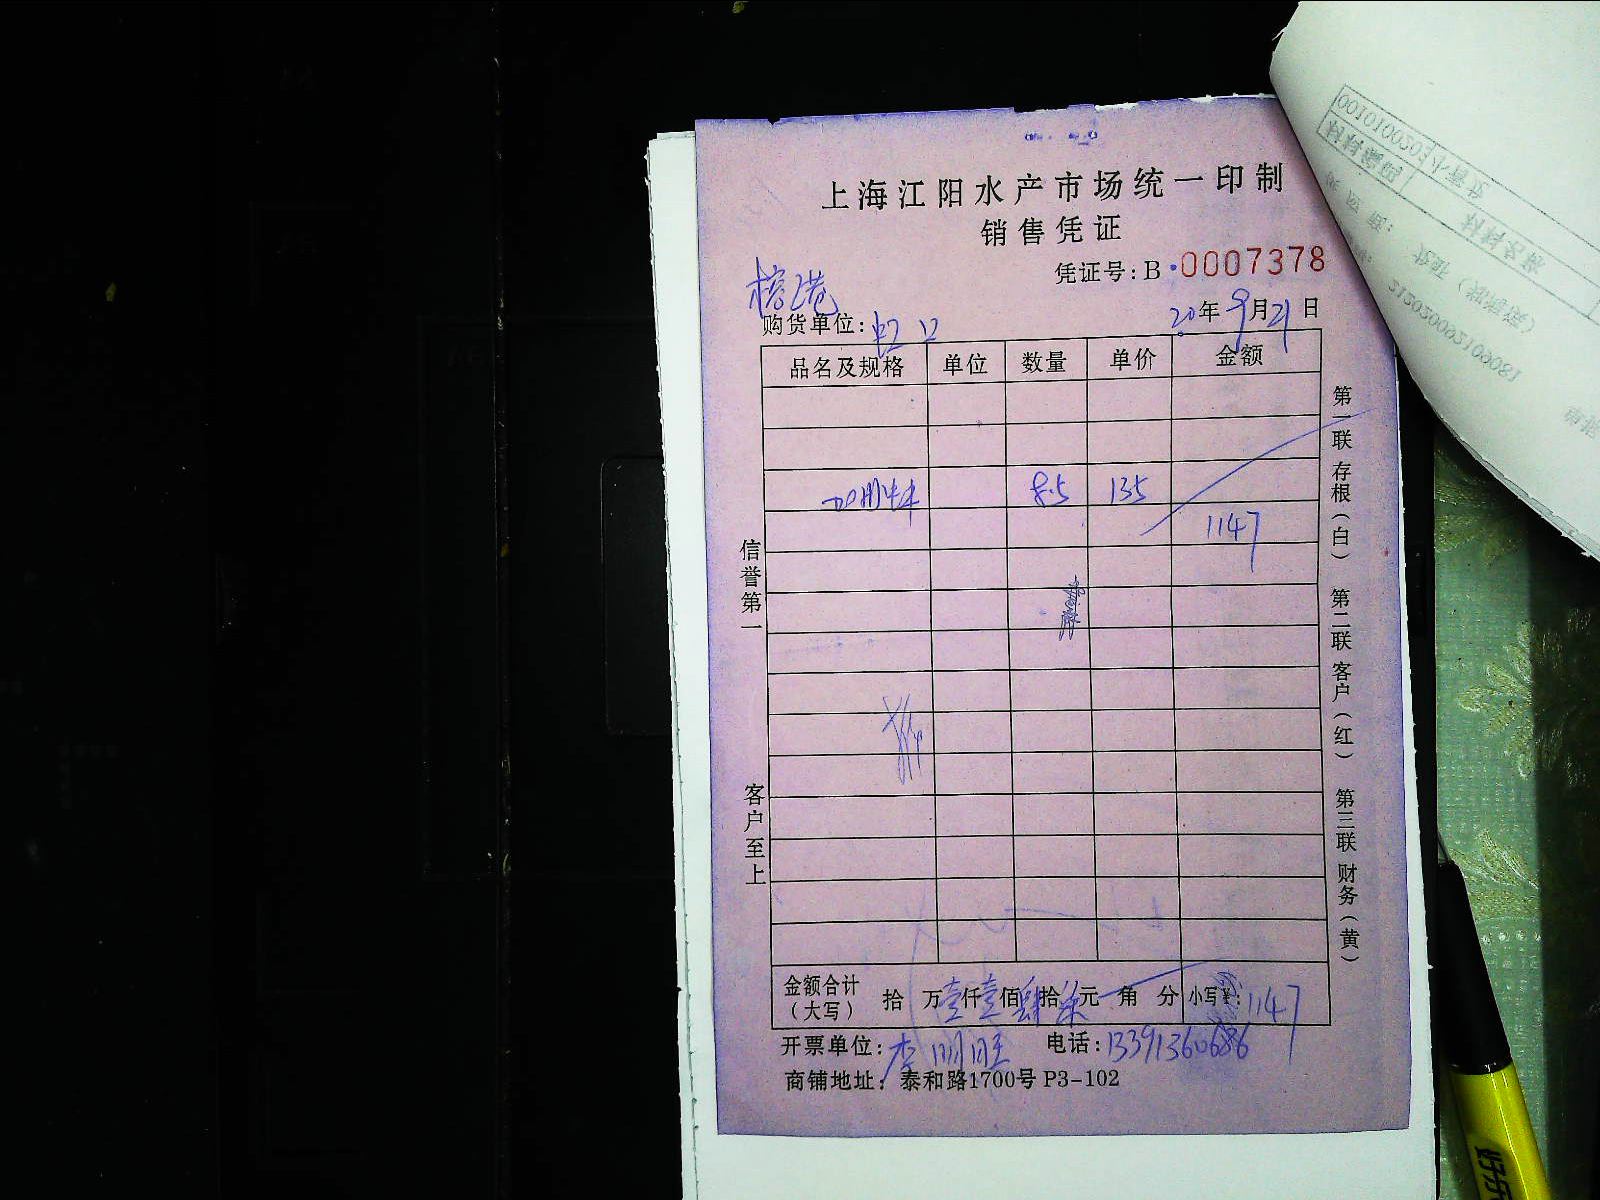 上海江阳水产市场统一印制
销售凭证
凭证号:B 0007378
榕港
购货单位:虹口
20年9月21日
品名及规格 单位 数量 单价 金额
8.5 135
1147
金额合计(大写) 拾万壹仟壹佰肆拾柒元角分 小写¥:1147
开票单位:李明旺 电话:13391360686
商铺地址:泰和路1700号 P3-102
信誉第一
客户至上
第一联 存根(白) 第二联 客户(红) 第三联 财务(黄)